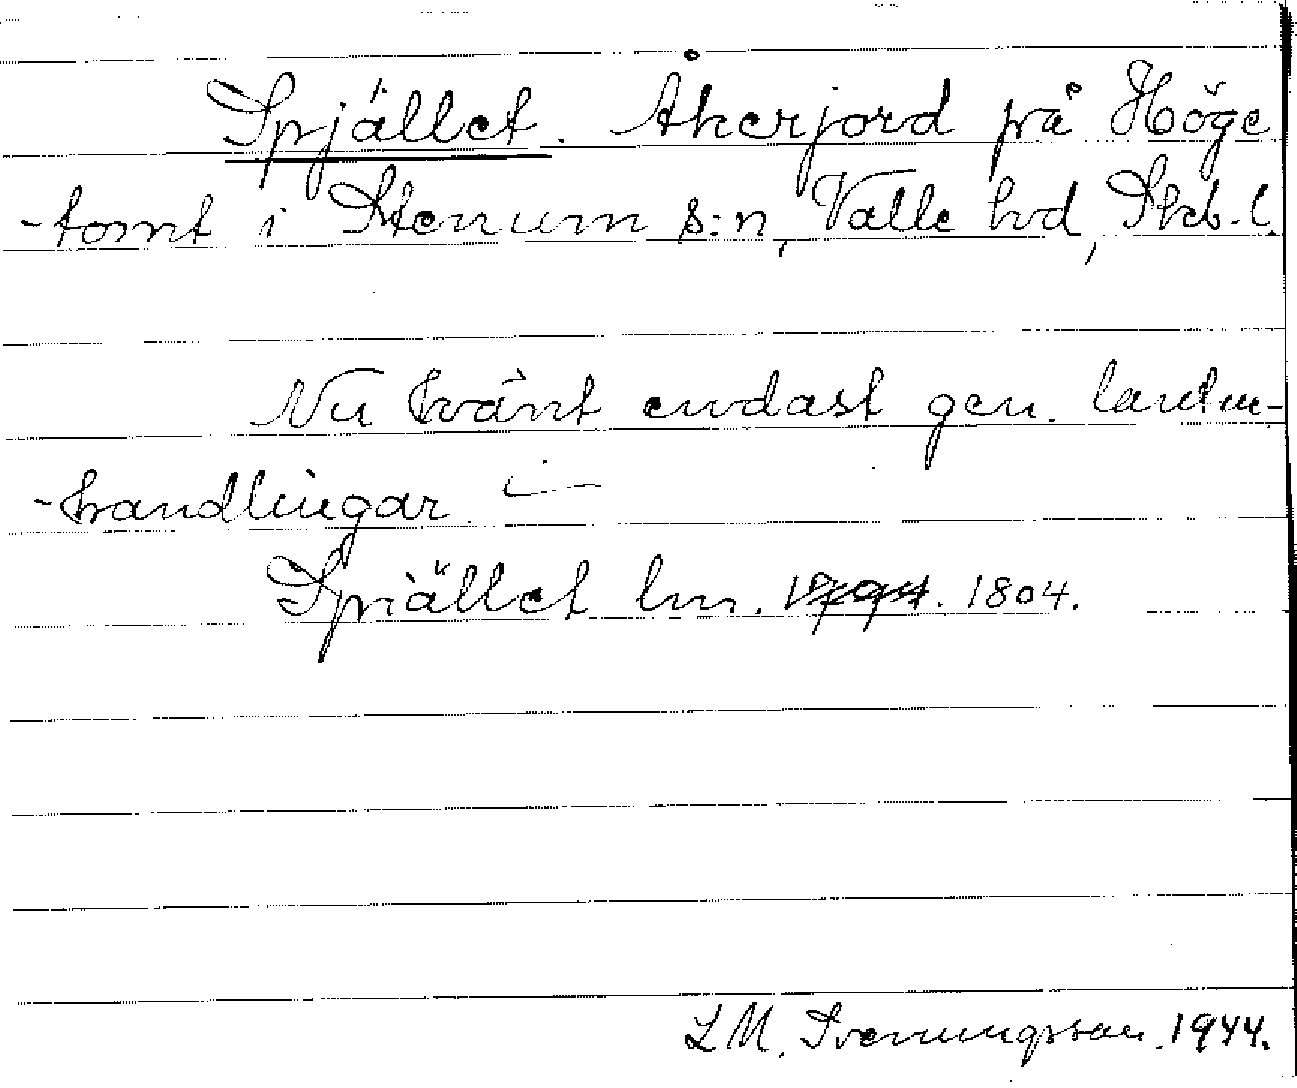 Spjället. Åkerjord på Höge
-tomt i Stenum s:n, Valle hd, Skb. l.
Nu känt endast gen. lantm-
-handlingar
Spiället lm. 1804.
L M. Svenungsson. 1944.